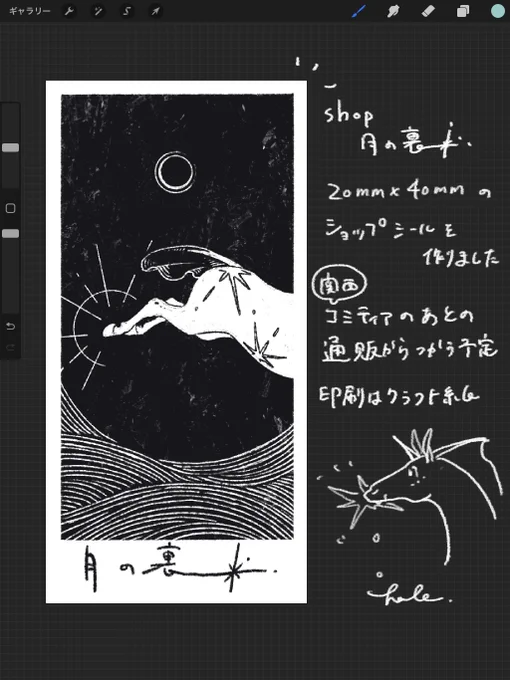 ギャラリー
shop
月の裏
20mm×40mmの
ショップシールを
作りました
関西
コミティアのあとの
通販からつかう予定
印刷はクラフト紙に
月の裏
hale.